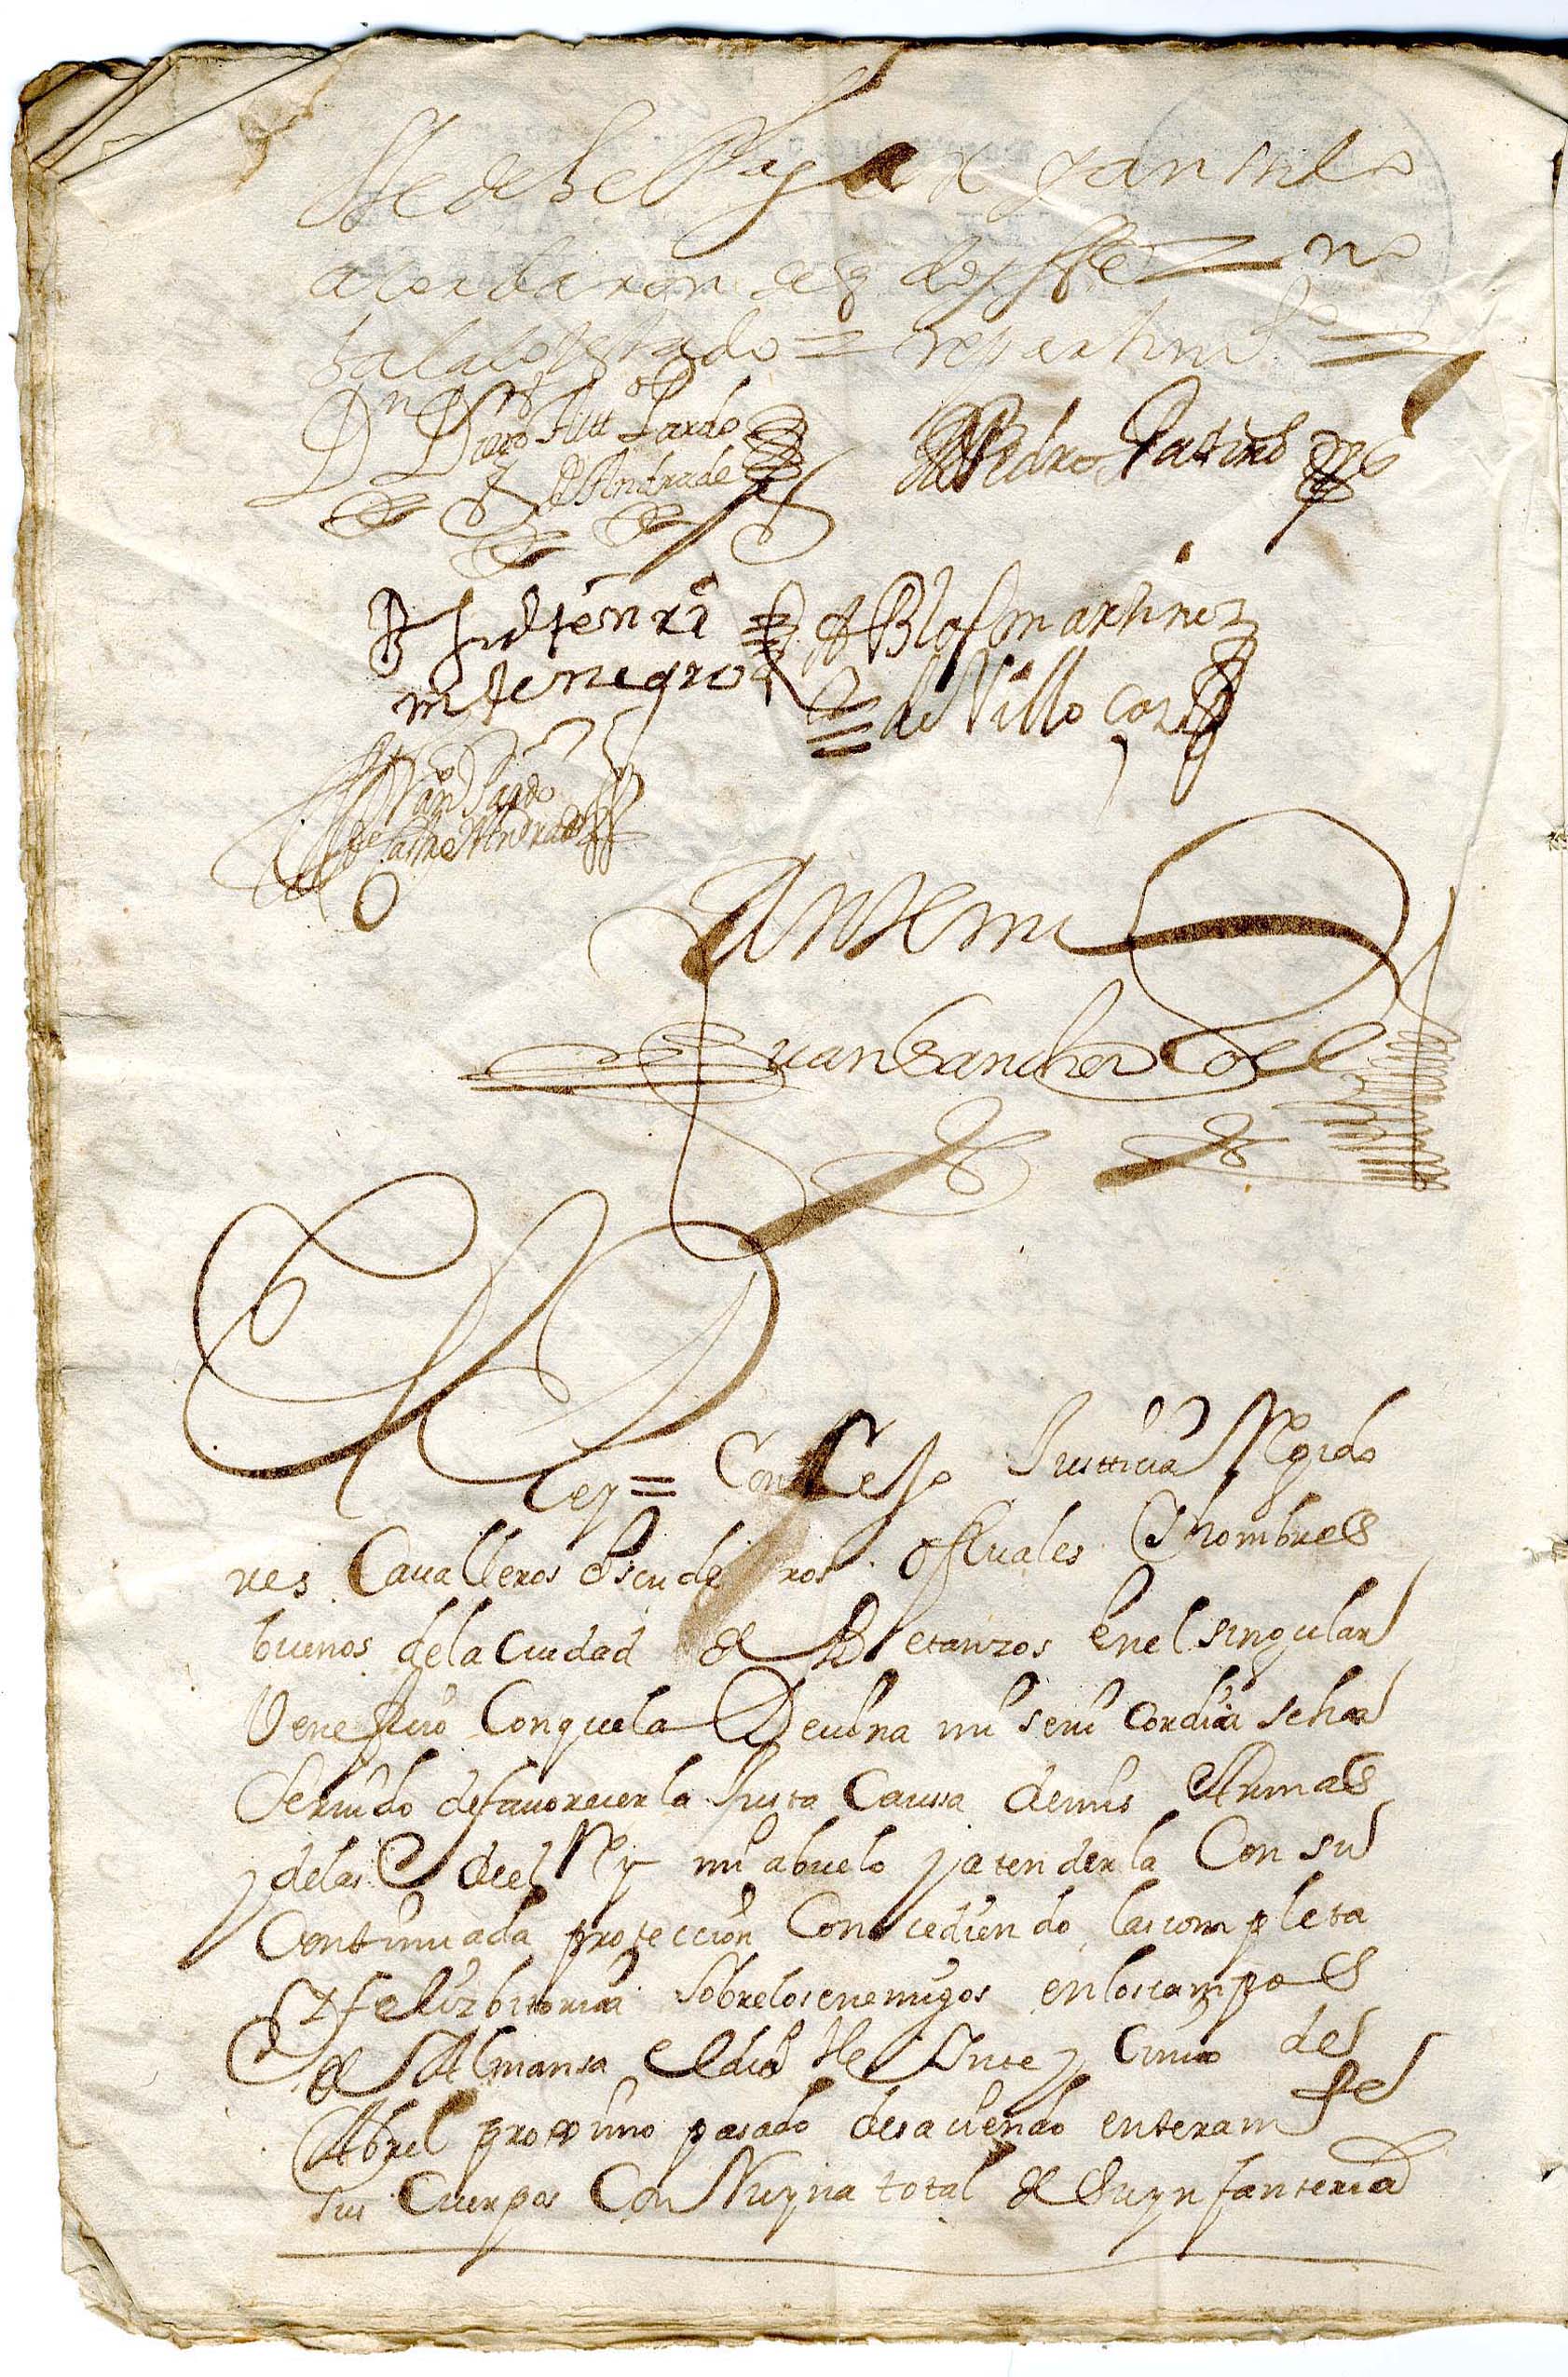 se deve Pagar y ansi lo
acordaron
repartim.to =
Dn
Pardo
de Andrade
Pedro Patiño
tenegro
Blas martinez
de Villo
Juan Pardo
Andrade
Antemi
Juan Sanchez Coll
Rey = Concejo Justticia Regido
res Cavalleros Escuderos ofiziales Ehombres
buenos dela Ciudad de Betanzos Enel singular
Veneficio Conquela Deuina misericordia seha
Seruido defavorecerla Justa Caussa demis Armas
y delas del Rey mi abuelo y atenderla Con su
Continuada protección Concediendo lascompleta
y feliz bitoria Sobrelosenemigos enloscampos
de Almansa Eldia Veinte y Cinco de
Abril proximo pasado desaciendo enteramte
sus Cuerpos Con Ruyna total de suynfanteria